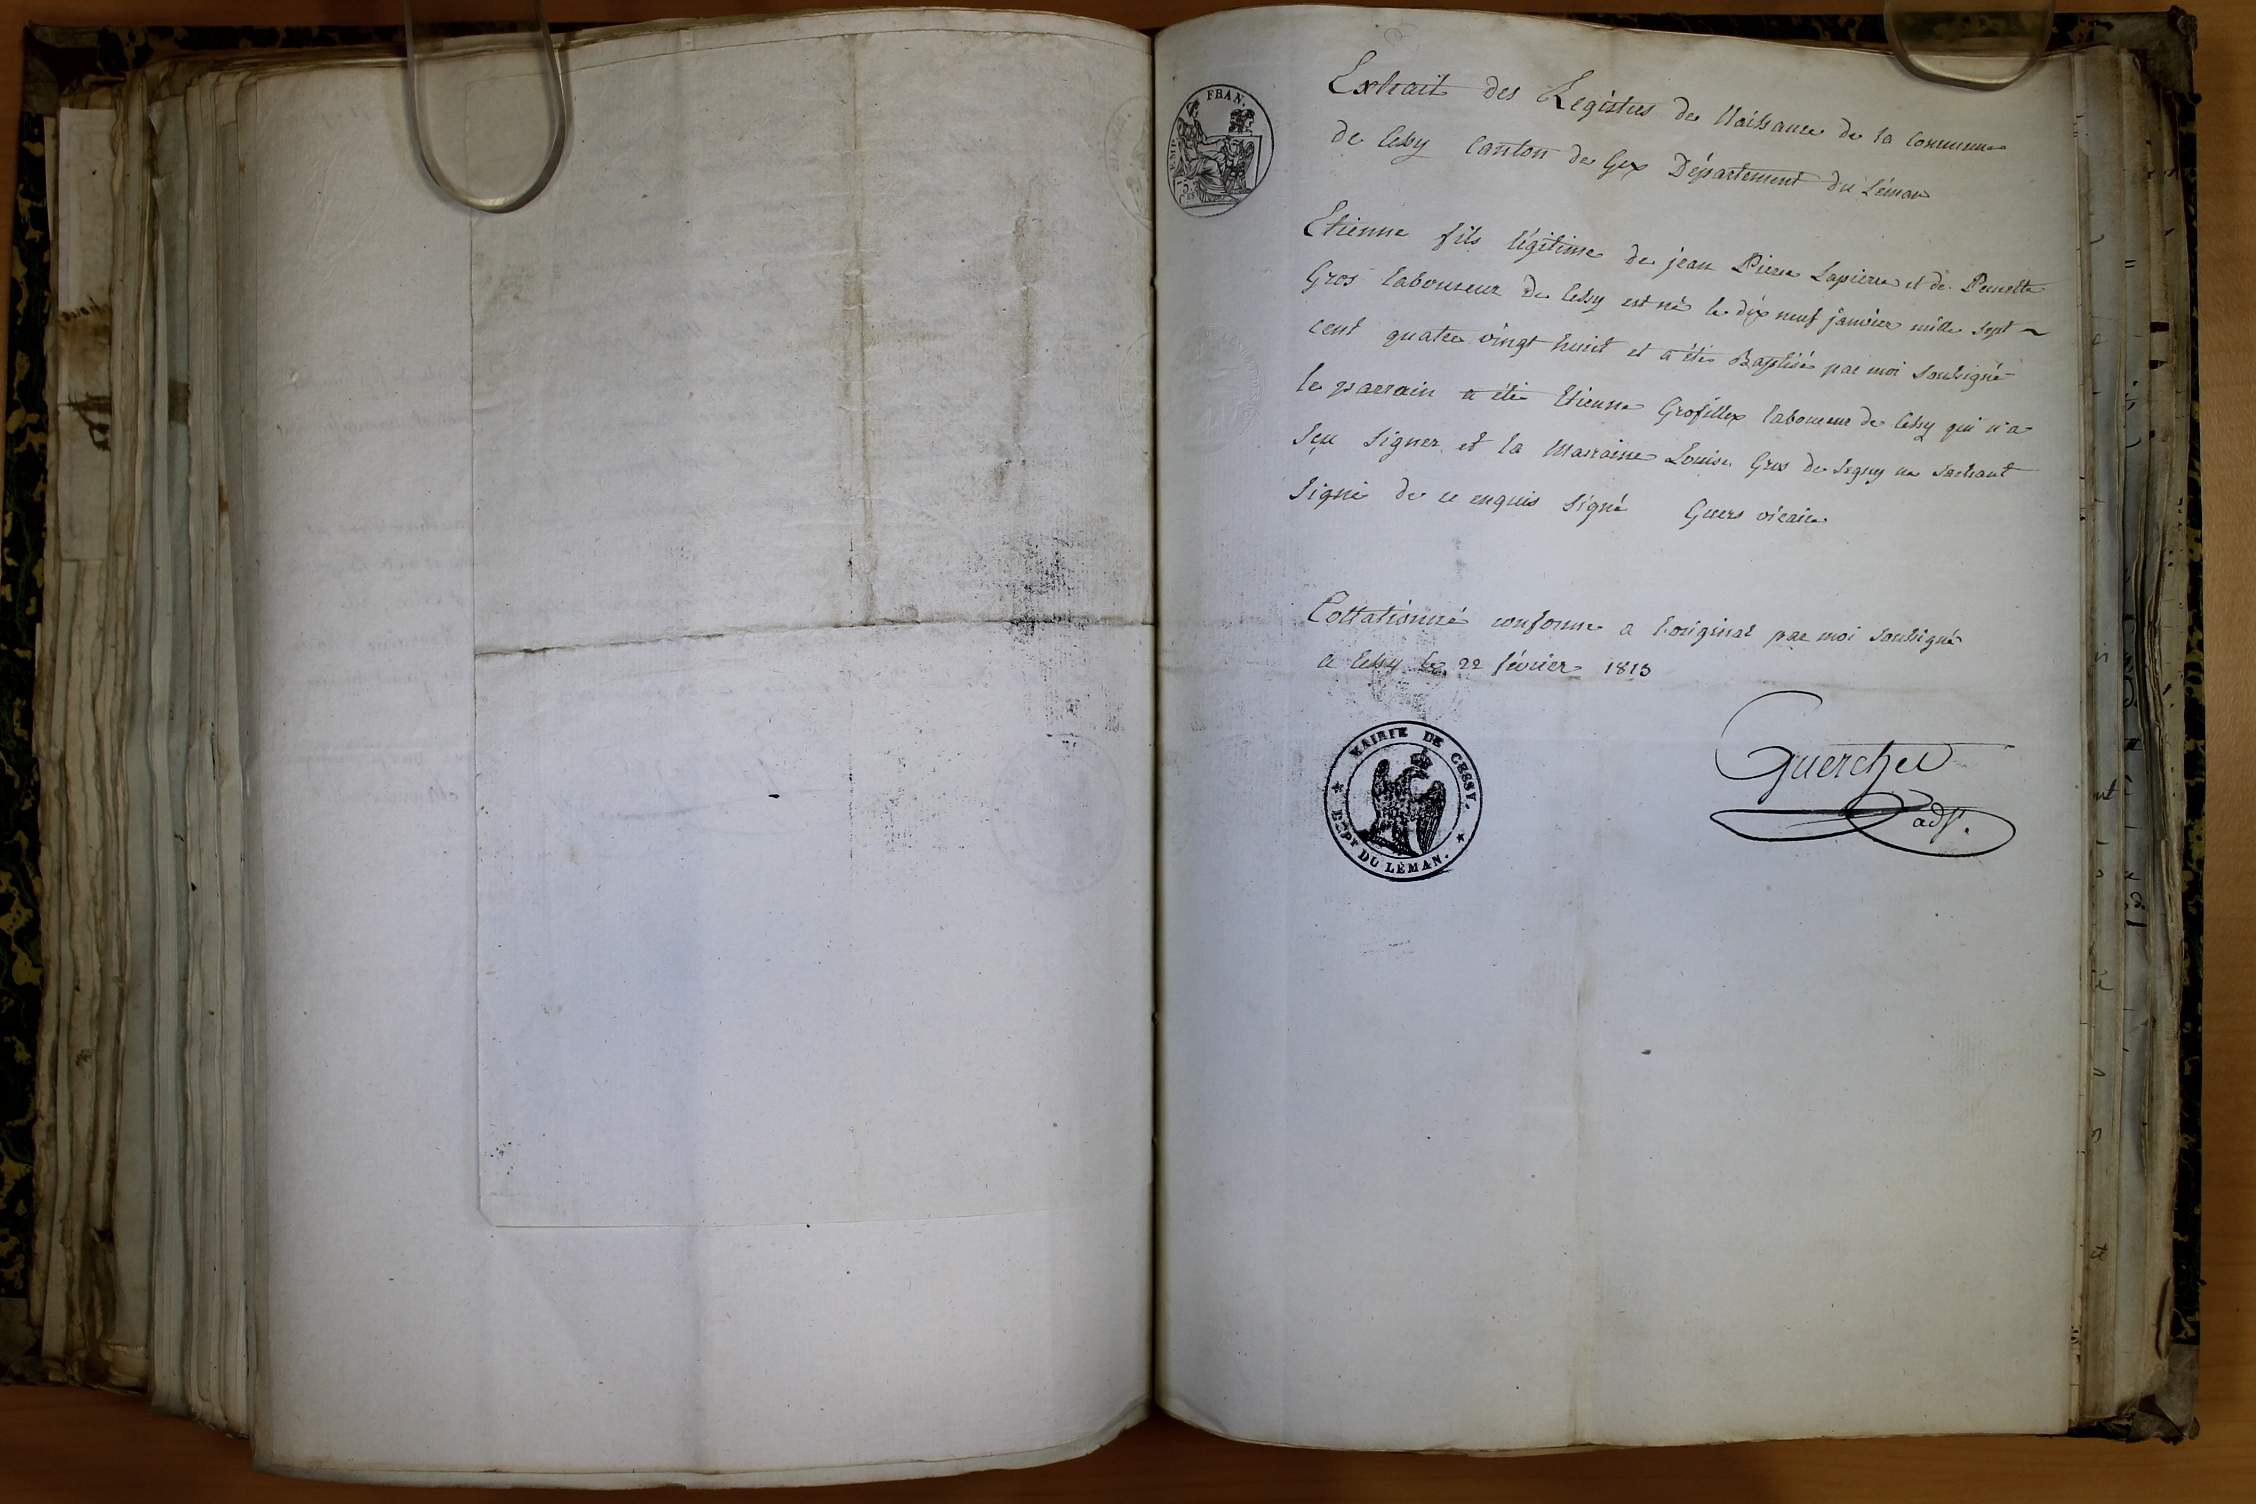 EMP. FRAN.
Extrait des Registres de Naissance de la commune
de Cessy Canton de Gex Département du Léman
Etienne fils légitime de jean Pierre Lapierre et de Pernette
Gros laboureur de Cessy est né le dix neuf janvier mille sept
cent quatre vingt huit et a été Baptisé par moi soussigné
le parrain a été Etienne Grosfillex laboureur de Cessy qui n'a
sçu signer et la Marraine Louise Gros de Segny ne sachant
signé de ce enquis signé Guers vicaire
Collationné conforme a l'original par moi soussigné
a Cessy le 22 février 1813
MAIRIE DE CESSY.
DEPT DU LÉMAN.
Guerchet
adjt.